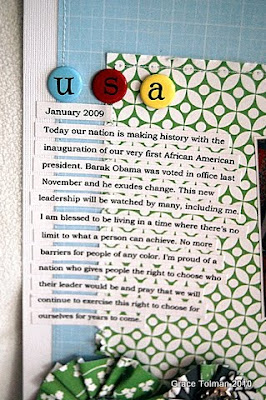 usa
January 2009
Today our nation is making history with the
inauguration of our very first African American
president. Barak Obama was voted in office last
November and he exudes change. This new
leadership will be watched by many, including me.
I am blessed to be living in a time where there's no
limit to what a person can achieve. No more
barriers for people of any color. I'm proud of a
nation who gives people the right to choose who
their leader would be and pray that we will
continue to exercise this right to choose for
ourselves for years to come.
Grace Tolman 2010